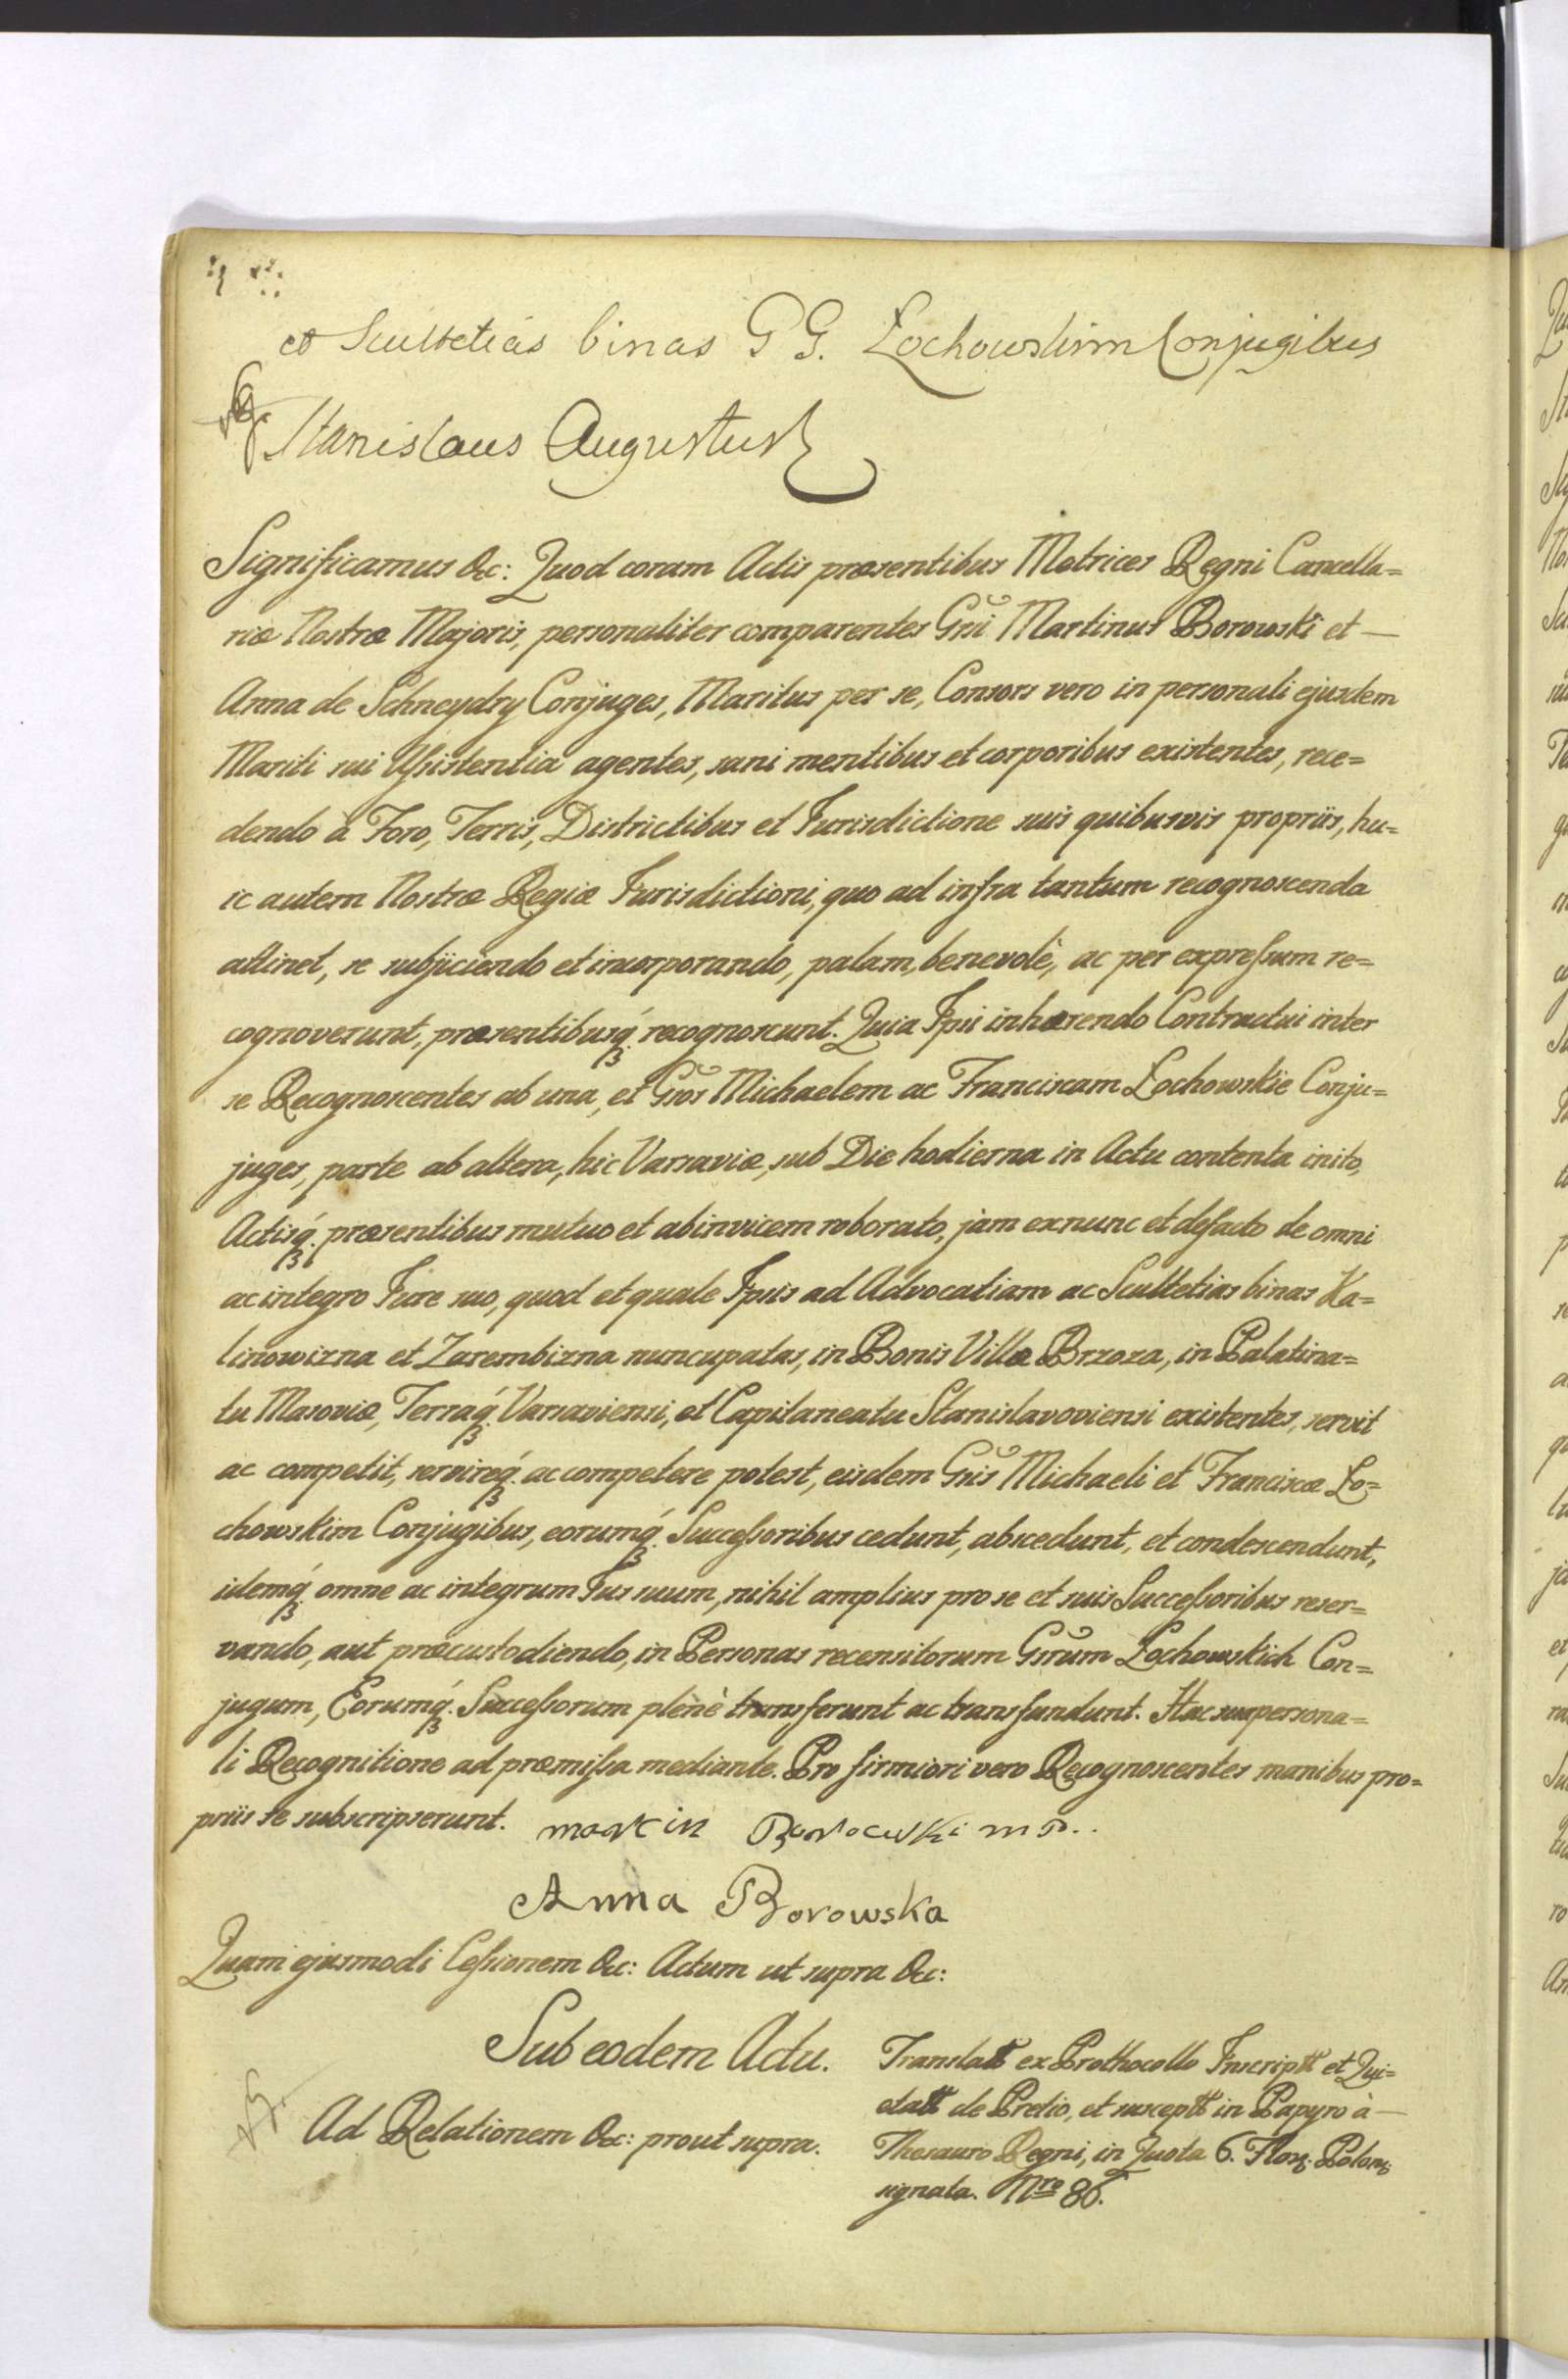 et Scultetias binas G G. Łochowskim Conjugibus
Stanislaus Augustus
Significamus &c: Quod coram Actis præsentibus Metrices Regni Cancella=
riæ Nostræ Majoris, personaliter comparentes Gñi Martinus Borowski et —
Anna de Schneydry Conjuges, Maritus per se, Consors vero in personali ejusdem
Mariti sui Assistentia agentes, sani mentibus et corporibus existentes, rece=
dendo à Foro, Terris, Districtibus et Jurisdictione suis quibusvis propriis, hu=
ic autem Nostræ Regiæ Jurisdictioni, quo ad infra tantum recognoscenda
attinet, se subjiciendo et incorporando, palam, benevolè, ac per expressum re=
cognoverunt, præsentibusq́ recognoscunt. Quia Ipsi inhærendo Contractui inter
se Recognoscentes ab una, et Gsos Michaelem ac Franciscam Łochowskie Conju=
juges, parte ab altera, hic Varsaviæ, sub Die hodierna in Actu contenta inito,
Actisq́. præsentibus mutuo et abinvicem roborato, jam exnunc et defacto de omni
ac integro Jure suo, quod et quale Ipsis ad Advocatiam ac Scultetias binas Ka=
linowizna et Zarembizna nuncupatas, in Bonis Villæ Brzoza, in Palatina=
tu Masoviæ, Terraq́. Varsaviensi, et Capitaneatu Stanislavoviensi existentes, servit
ac competit, servireq́. ac competere potest, eisdem Gsis Michaeli et Franciscæ Ło=
chowskim Conjugibus, eorumq́. Successoribus cedunt, abscedunt, et condescendunt,
idemq́. omne ac integrum Jus suum, nihil amplius pro se et suis Successoribus reser=
vando, aut præcustodiendo, in Personas recensitorum Gsrum Łochowskich Con=
jugum, Eorumq́. Successorum plenè transferunt ac transfundunt. Hac sua persona=
li Recognitione ad præmissa mediante. Pro firmiori vero Recognoscentes manibus pro=
priis se subscripserunt. Martin Borowski mp..
Anna Borowska
Quam ejusmodi Cessionem &c: Actum ut supra &c:
Sub eodem Actu.
Ad Relationem &c: prout supra.
Translatt ex Prothocollo Inscriptt et Qui=
etatt de Pretio, et susceptt in Papyro à —
Thesauro Regni, in Quota 6. Flor. Polon.
signata. Nro 86.